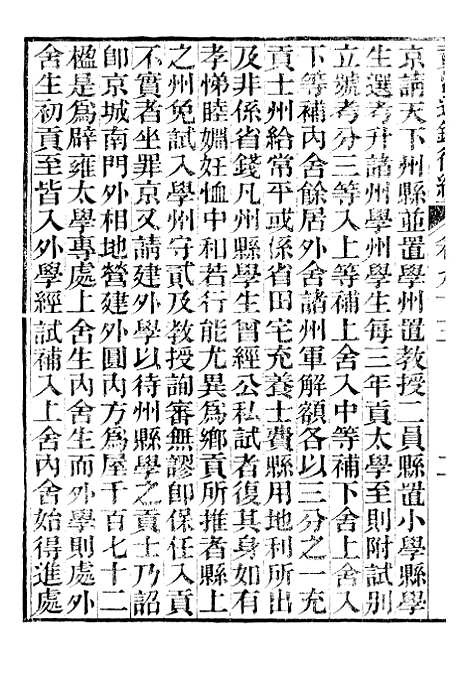 京請天下州縣並置學州置教授二員縣置小學縣學
生選考升諸州學州學生每三年貢太學至則附試別
立號考分三等入上等補上舍入中等補下舍入
下等補內舍餘居外舍諸州軍解額各以三分之一充
貢士州給常平或係省田宅充養士費縣用地利所出
及非係省錢凡州縣學生曾經公私試者復其身如有
孝悌睦婣任恤中和若行能尤異為鄉貢所推者縣上
之州免試入學州守貳及教授詢審無謬卽保任入貢
不實者坐罪京又請建外學以待州縣學之貢士乃詔
卽京城南門外相地營建外圓內方為屋千百七十二
楹是為辟雍太學專處上舍生內舍生而外學則處外
舍生初貢至皆入外學經試補入上舍內舍始得進處